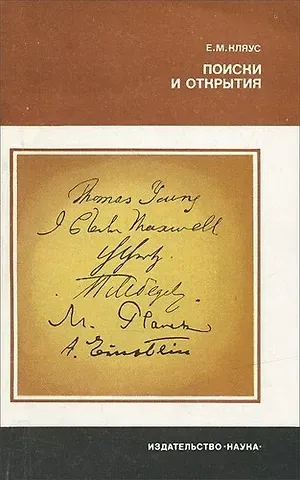 Е. М. КЛЯУС
ПОИСКИ
И ОТКРЫТИЯ
Thomas Young
J Clerk Maxwell
П Лебедев
M. Planck
A. Einstein
ИЗДАТЕЛЬСТВО «НАУКА»